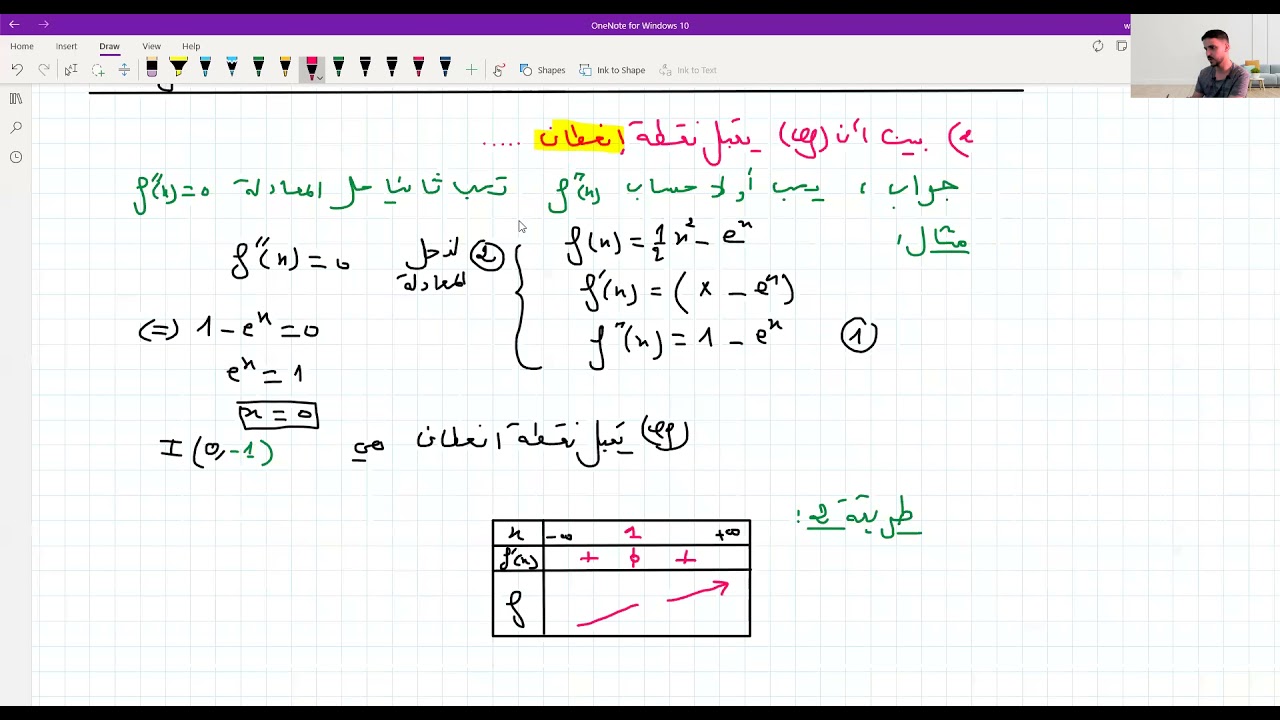 OneNote for Windows 10
Home Insert Draw View Help
Shapes Ink to Shape Ink to Text
e) بين أن (Cf) يقبل نقطة إنعطاف .....
جواب : يجب أولا حساب f"(x) ثانيا حل المعادلة f"(x)=0
مثال :
f(x) = 1/2 x² - eˣ
f'(x) = (x - eˣ)
f"(x) = 1 - eˣ ①
② لنحل المعادلة
f"(x) = 0
(=) 1 - eˣ = 0
eˣ = 1
x = 0
(Cf) يقبل نقطة انعطاف هي I(0,-1)
طريقة 2 :
x -∞ 1 +∞
f'(x) + 0 +
f